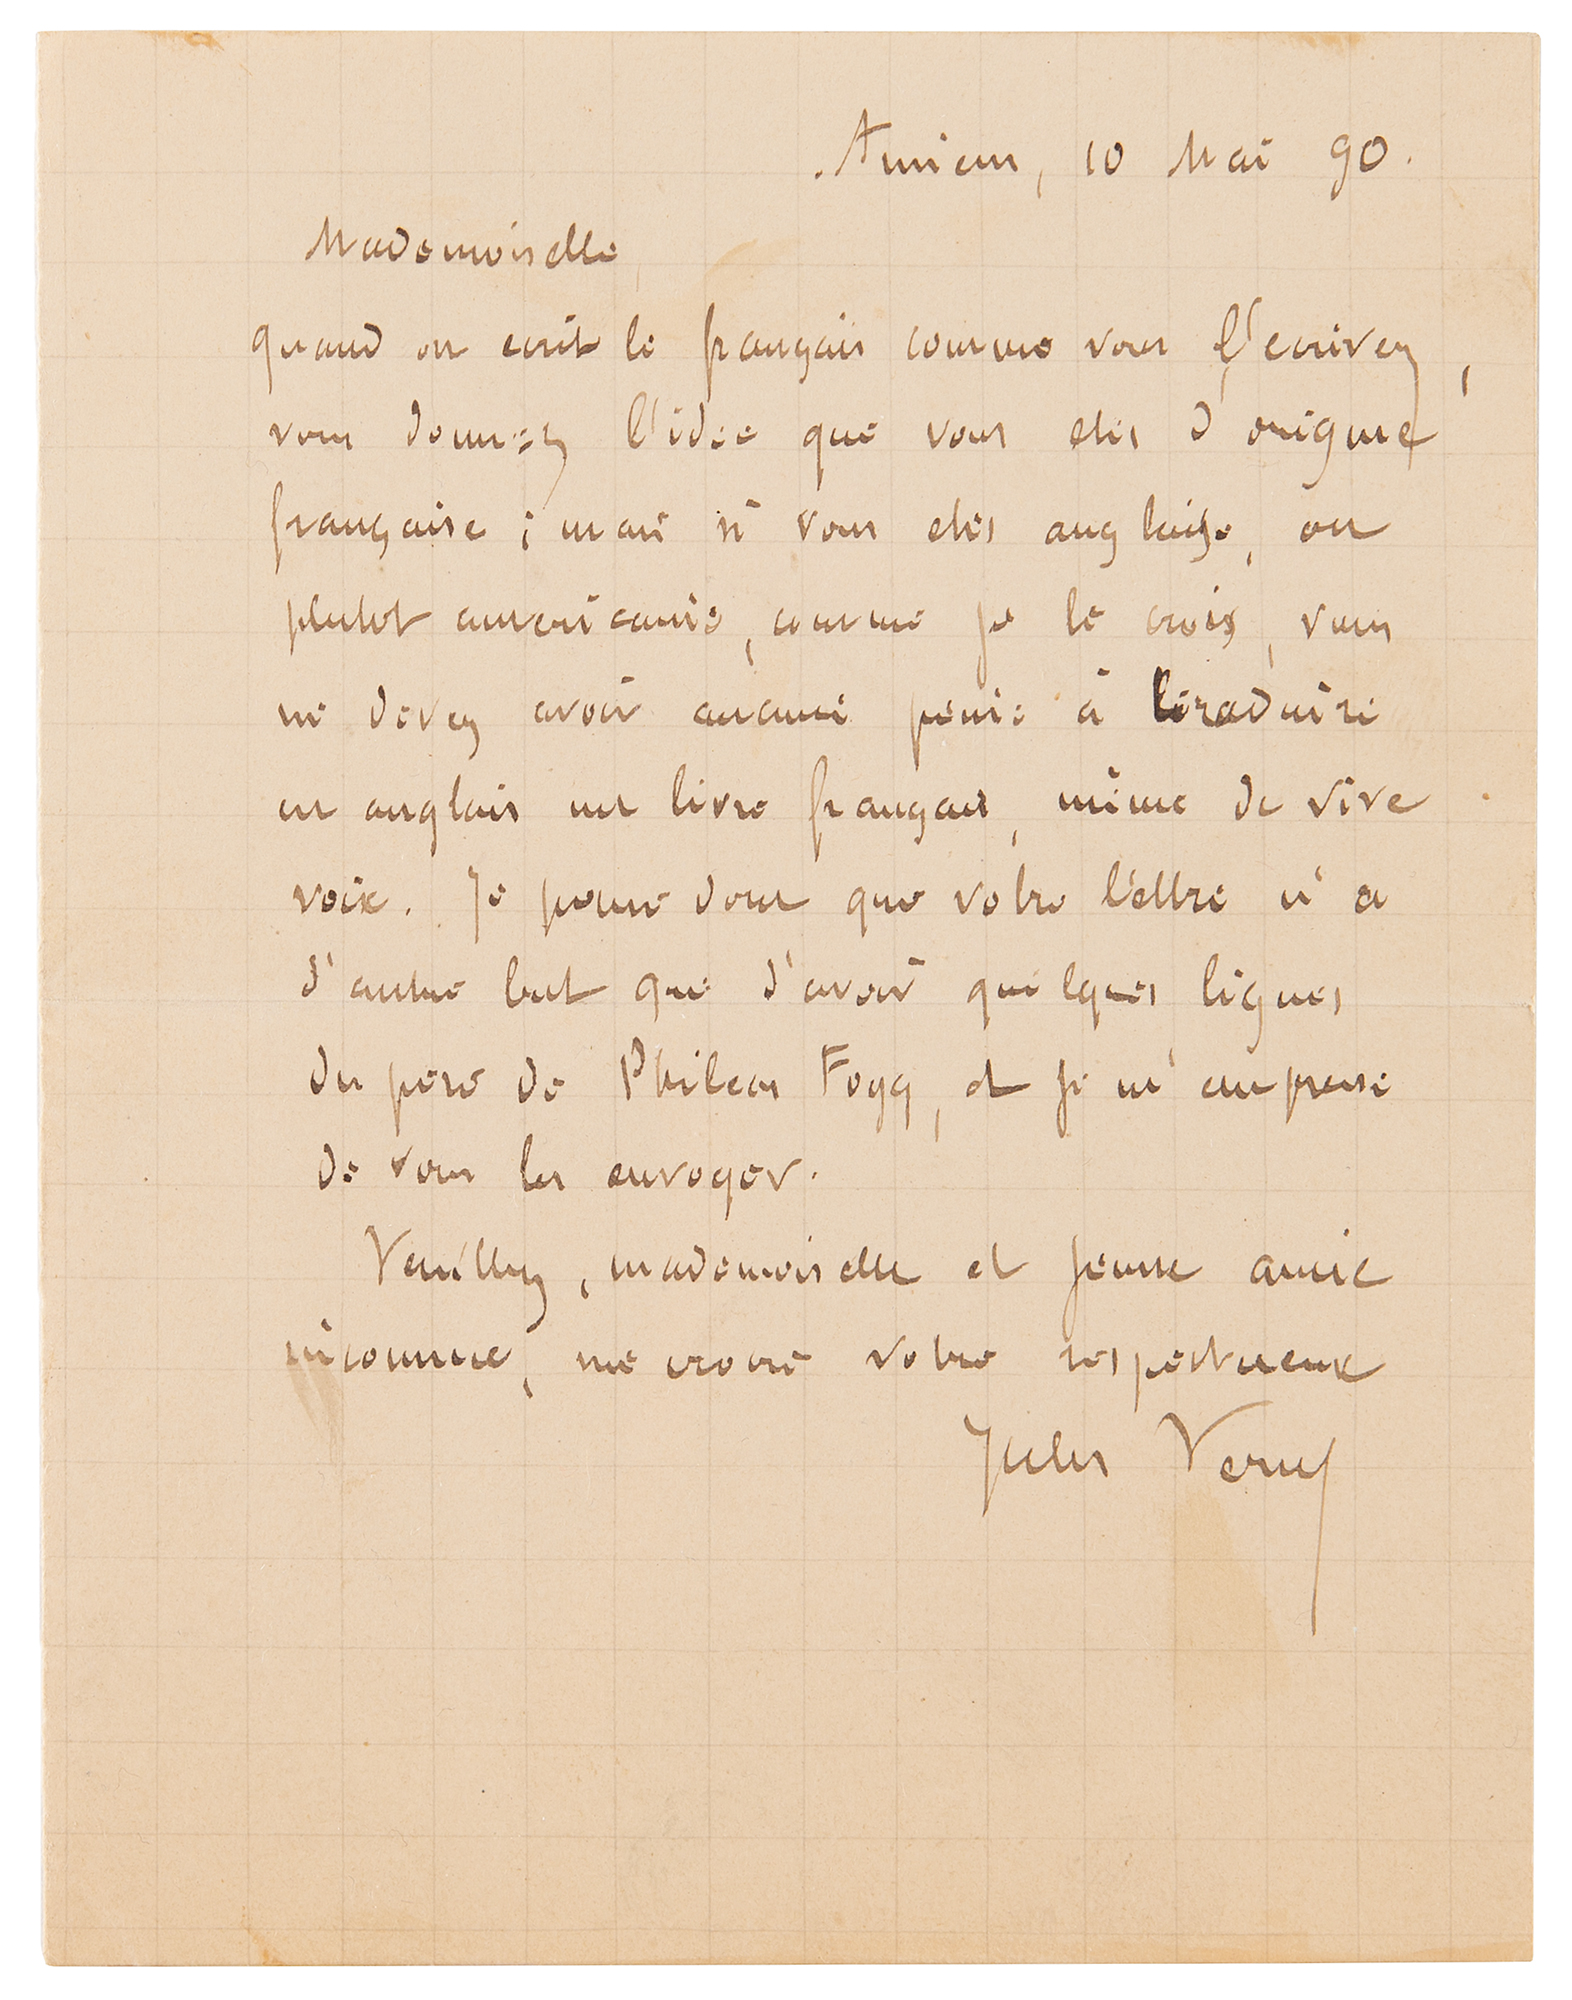 Amiens, 10 Mai 90.
Mademoiselle,
quand on ecrit le français comme vous l'ecrivez,
vous donnez l'idée que vous etes d'origine
française ; mais si vous etes anglaise, ou
plutot americaine, comme je le crois, vous
ne devez avoir aucune peine à traduire
en anglais un livre français, même de vive
voix. Je pense donc que votre lettre n'a
d'autre but que d'avoir quelques lignes
du père de Phileas Fogg, et je m'empresse
de vous les envoyer.
Veuillez, mademoiselle et jeune amie
inconnue, me croire votre respectueux
Jules Verne